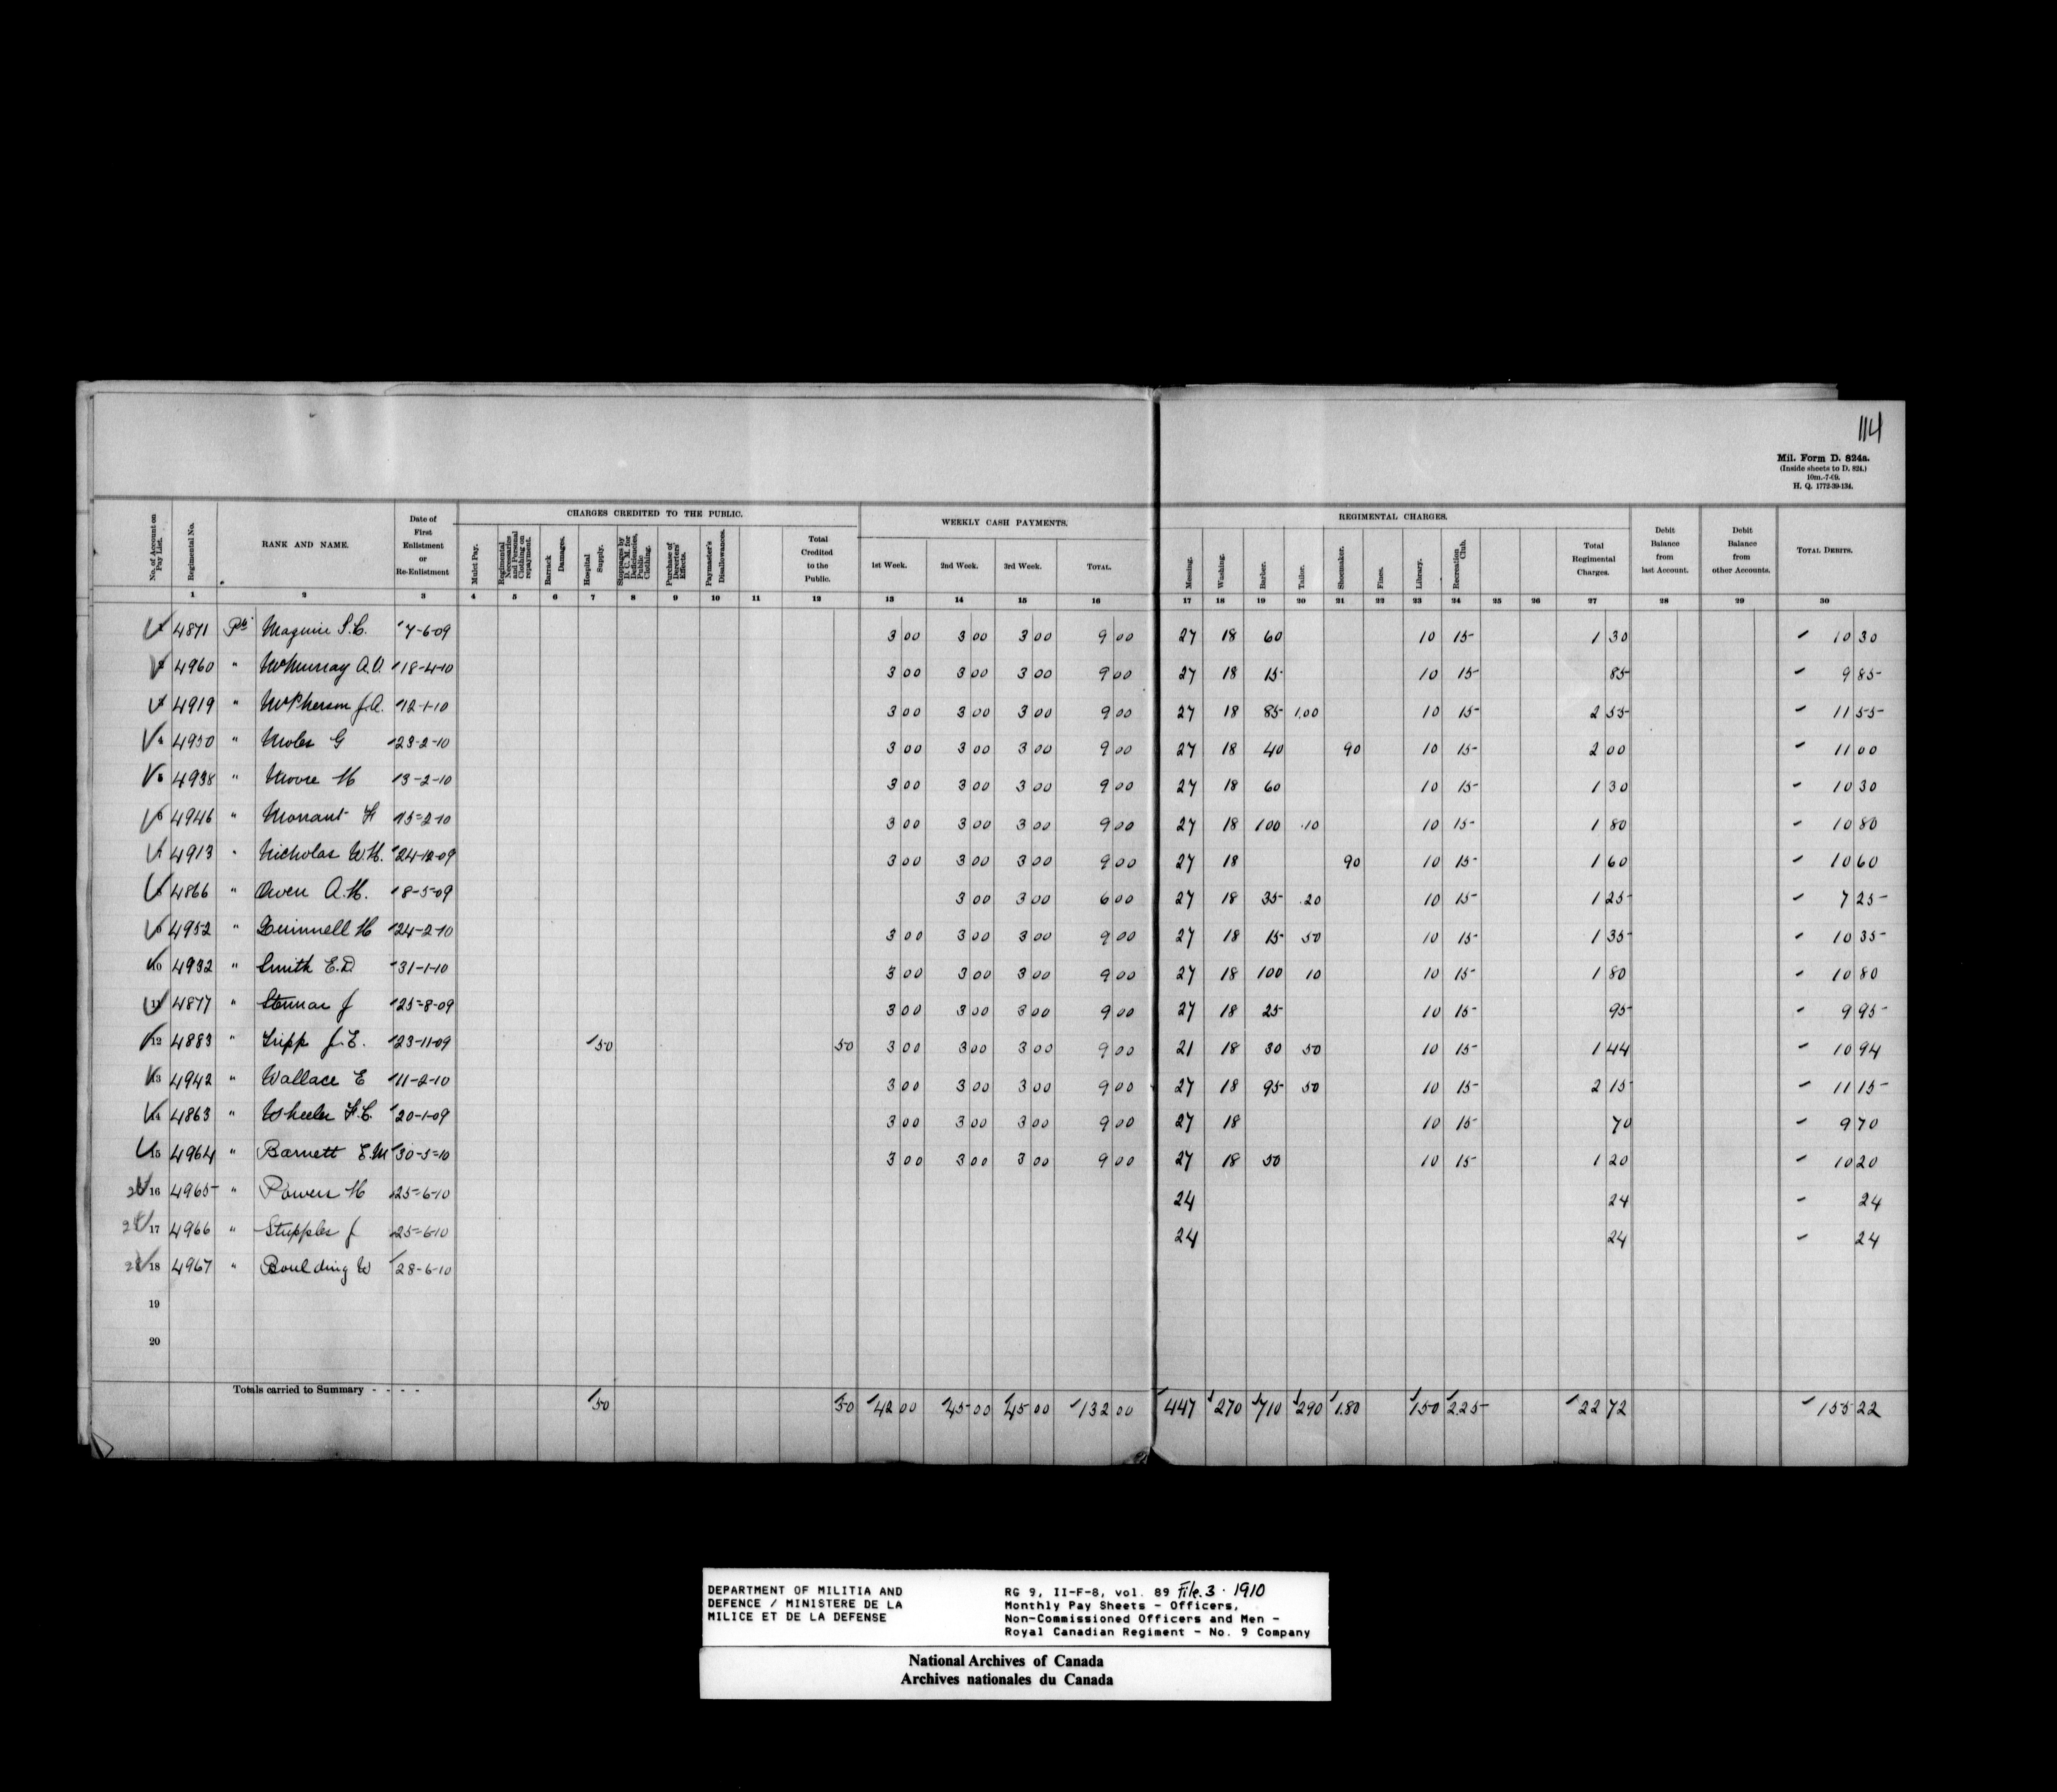 114
Mil. Form D. 824a.
(Inside sheets to D. 824.)
10m.-7-09.
H. Q. 1772-39-134.
CHARGES CREDITED TO THE PUBLIC. WEEKLY CASH PAYMENTS. REGIMENTAL CHARGES.
No. of Account on Pay List. Regimental No. RANK AND NAME. Date of First Enlistment or Re-Enlistment Mulct Pay. Regimental Necessaries and Personal Clothing on repayment. Barrack Damages. Hospital Supply. Stoppages by D. C. M. for Deficiencies, Public Clothing. Purchase of Deserters' Effects. Paymaster's Disallowances. Total Credited to the Public. 1st Week. 2nd Week. 3rd Week. TOTAL. Messing. Washing. Barber. Tailor. Shoemaker. Fines. Library. Recreation Club. Total Regimental Charges. Debit Balance from last Account. Debit Balance from other Accounts. TOTAL DEBITS.
1 2 3 4 5 6 7 8 9 10 11 12 13 14 15 16 17 18 19 20 21 22 23 24 25 26 27 28 29 30
4871 Pte Maguire S.C. 7-6-09 3 00 3 00 3 00 9 00 27 18 60 10 15 1 30 10 30
4960 " McMurray A.V. 18-4-10 3 00 3 00 3 00 9 00 27 18 15 10 15 85 9 85
4919 " McPherson J.A. 12-1-10 3 00 3 00 3 00 9 00 27 18 85 1.00 10 15 2 55 11 55
4 4950 " Moles G 23-2-10 3 00 3 00 3 00 9 00 27 18 40 90 10 15 2 00 11 00
5 4938 " Moore H 3-2-10 3 00 3 00 3 00 9 00 27 18 60 10 15 1 30 10 30
6 4946 " Morrant F 15-2-10 3 00 3 00 3 00 9 00 27 18 100 .10 10 15 1 80 10 80
4913 " Nicholas W.H. 24-12-09 3 00 3 00 3 00 9 00 27 18 90 10 15 1 60 10 60
4866 " Owen A.H. 18-5-09 3 00 3 00 6 00 27 18 35 .20 10 15 1 25 7 25
4952 " Quinnell H 24-2-10 3 00 3 00 3 00 9 00 27 18 15 50 10 15 1 35 10 35
10 4932 " Smith E.D. 31-1-10 3 00 3 00 3 00 9 00 27 18 100 10 10 15 1 80 10 80
11 4877 " J 25-8-09 3 00 3 00 3 00 9 00 27 18 25 10 15 95 9 95
12 4883 " Tripp J.E. 23-11-09 50 50 3 00 3 00 3 00 9 00 21 18 30 50 10 15 1 44 10 94
13 4942 " Wallace E 11-2-10 3 00 3 00 3 00 9 00 27 18 95 50 10 15 2 15 11 15
14 4863 " Wheeler F.C. 20-1-09 3 00 3 00 3 00 9 00 27 18 10 15 70 9 70
15 4964 " Barnett E.M 30-5-10 3 00 3 00 3 00 9 00 27 18 50 10 15 1 20 10 20
16 4965 " Powers H 25-6-10 24 24 24
17 4966 " Stupples J 25-6-10 24 24 24
18 4967 " Boulding W 28-6-10
19
20
Totals carried to Summary - - - - 50 50 42 00 45 00 45 00 132 00 447 270 710 290 1.80 1.50 2.25 22 72 155 22
DEPARTMENT OF MILITIA AND
DEFENCE / MINISTERE DE LA
MILICE ET DE LA DEFENSE
RG 9, II-F-8, vol. 89 File. 3 · 1910
Monthly Pay Sheets - Officers,
Non-Commissioned Officers and Men -
Royal Canadian Regiment - No. 9 Company
National Archives of Canada
Archives nationales du Canada